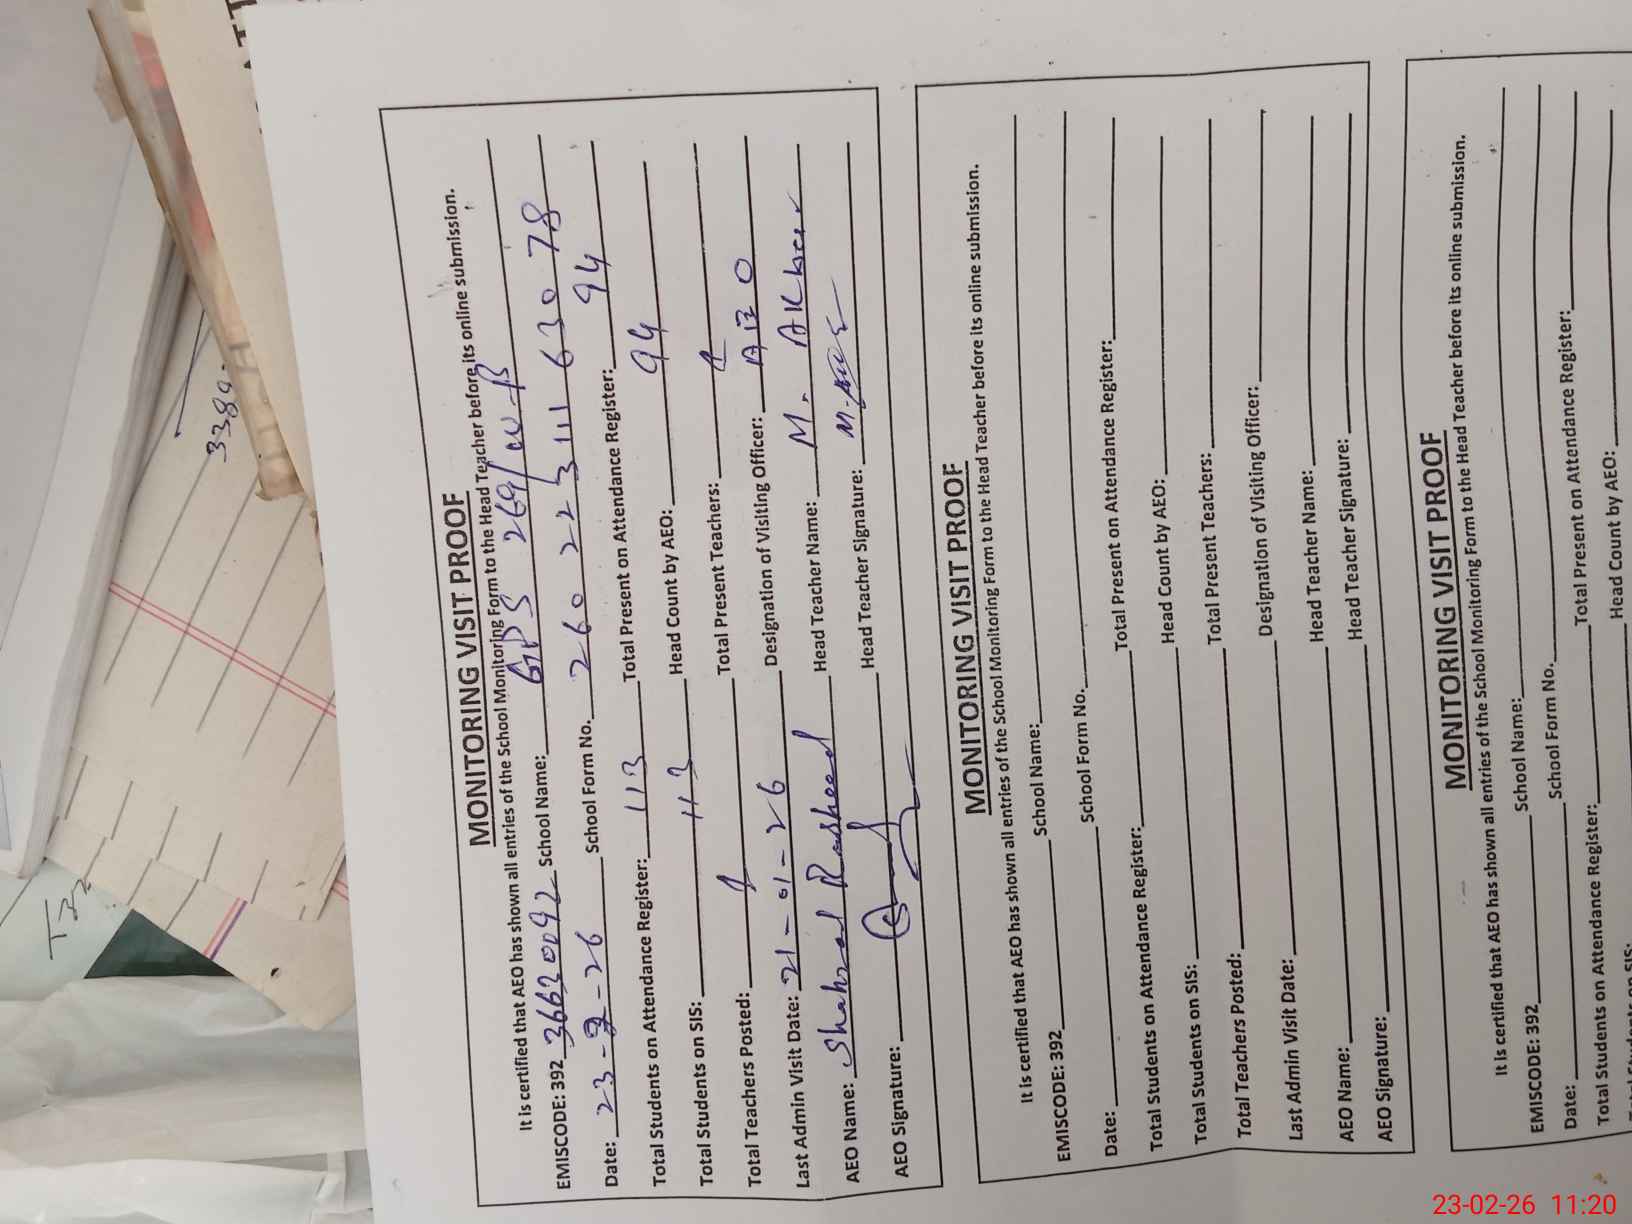 MONITORING VISIT PROOF
It is certified that AEO has shown all entries of the School Monitoring Form to the Head Teacher before its online submission.
EMISCODE: 392 36630092 School Name: GPS 269/W-B
Date: 23-2-26 School Form No. 260 223111 630 78
Total Students on Attendance Register: 113 Total Present on Attendance Register: 94
Total Students on SIS: 113 Head Count by AEO: 94
Total Teachers Posted: Total Present Teachers:
Last Admin Visit Date: 21-01-26 Designation of Visiting Officer: AEO
AEO Name: Shahzad Rasheed Head Teacher Name: M. Akbar
AEO Signature: Head Teacher Signature:
MONITORING VISIT PROOF
It is certified that AEO has shown all entries of the School Monitoring Form to the Head Teacher before its online submission.
EMISCODE: 392 School Name:
Date: School Form No.
Total Students on Attendance Register: Total Present on Attendance Register:
Total Students on SIS: Head Count by AEO:
Total Teachers Posted: Total Present Teachers:
Last Admin Visit Date: Designation of Visiting Officer:
AEO Name: Head Teacher Name:
AEO Signature: Head Teacher Signature:
MONITORING VISIT PROOF
It is certified that AEO has shown all entries of the School Monitoring Form to the Head Teacher before its online submission.
EMISCODE: 392 School Name:
Date: School Form No.
Total Students on Attendance Register: Total Present on Attendance Register:
Head Count by AEO:
3389
23-02-26 11:20